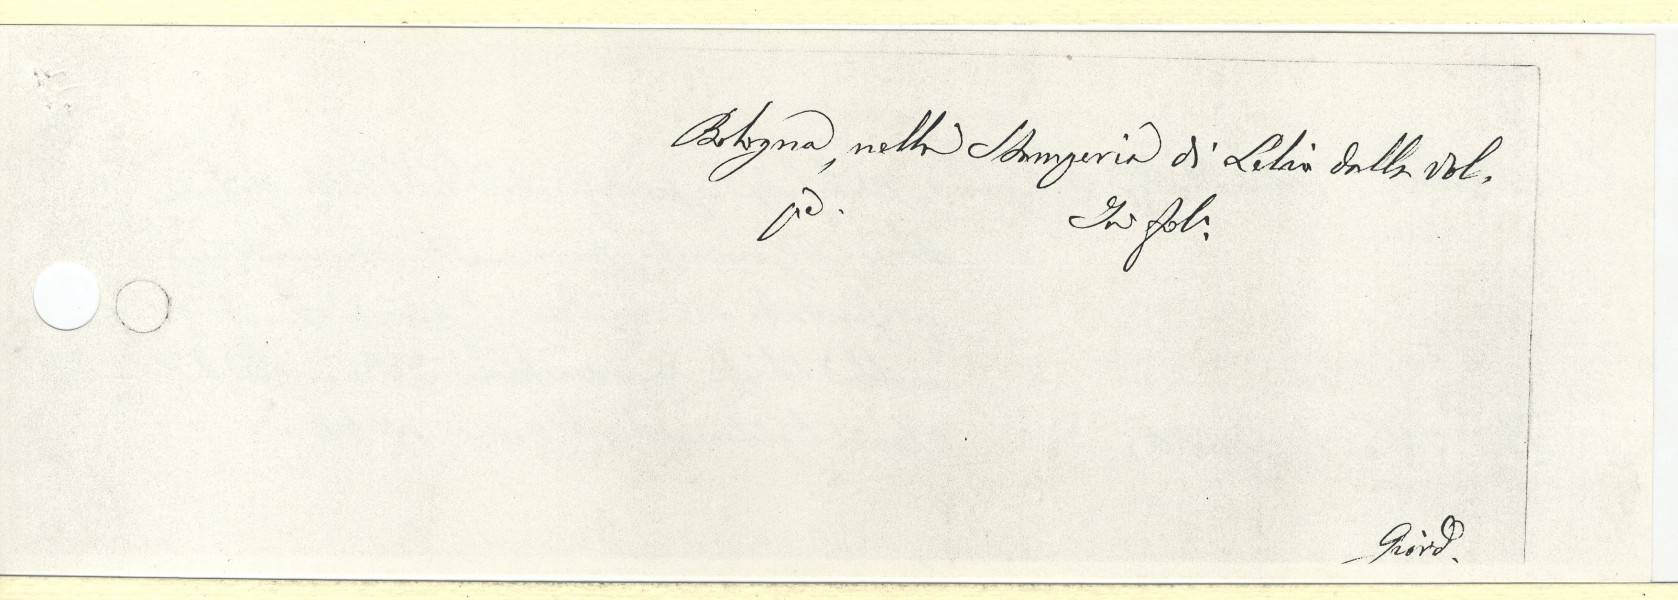 Bologna, nella Stamperia di Lelio dalla Vol,
pe. In fol:
Giord.